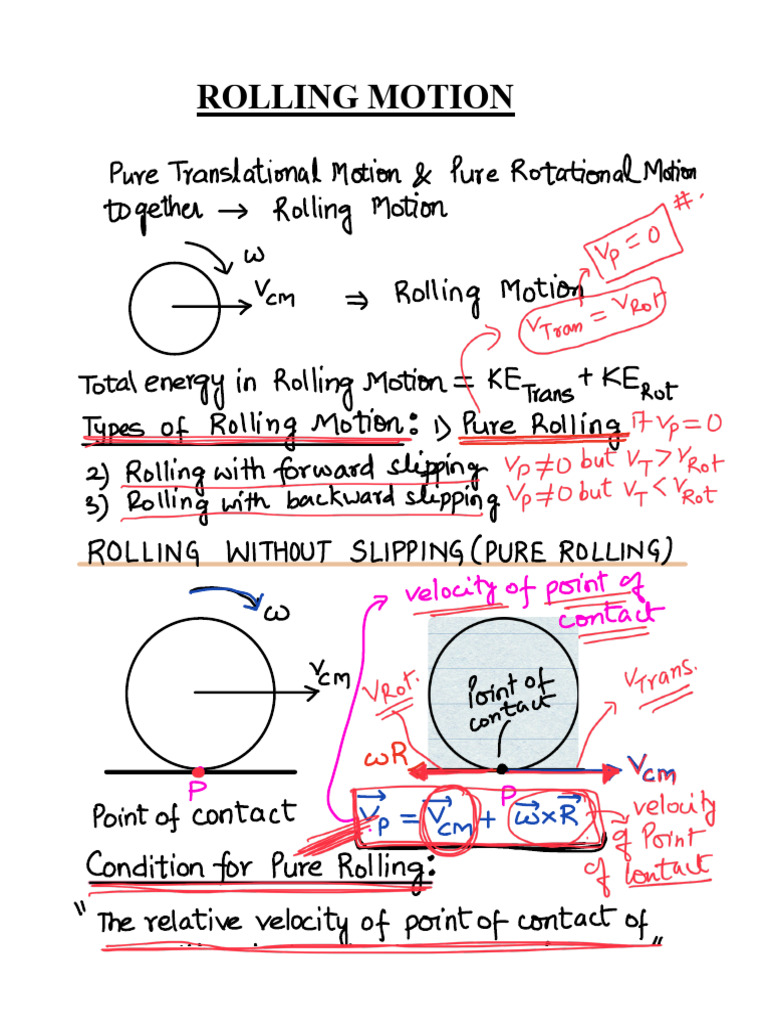 ROLLING MOTION
Pure Translational Motion & Pure Rotational Motion
together → Rolling Motion
#.
V_P = 0
ω
V_cm ⇒ Rolling Motion
V_Tran = V_Rot
Total energy in Rolling Motion = KE_Trans + KE_Rot
Types of Rolling Motion: 1) Pure Rolling if V_P = 0
2) Rolling with forward slipping V_P ≠ 0 but V_T > V_Rot
3) Rolling with backward slipping V_P ≠ 0 but V_T < V_Rot
ROLLING WITHOUT SLIPPING (PURE ROLLING)
velocity of point of
contact
ω
V_cm
P
Point of contact
V_Rot.
V_Trans.
Point of
contact
ωR
V_cm
P
V⃗_P = V⃗_cm + ω⃗ × R⃗
velocity
of Point
of Contact
Condition for Pure Rolling:
"The relative velocity of point of contact of"